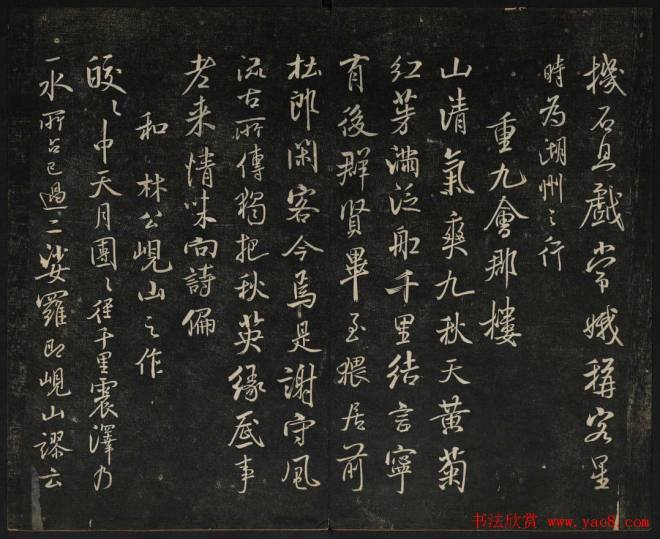 機石且戲常娥稱客星
時為湖州之行
重九會郡樓
山清氣爽九秋天黃菊
紅茱滿泛船千里結言寧
有後群賢畢至猥居前
杜郎閑客今焉是謝守風
流古所傳獨把秋英緣底事
老來情味向詩偏
和林公峴山之作
皎皎中天月團團徑千里震澤乃
一水所占已過二娑羅即峴山謬云
书法欣赏 www.yac8.com